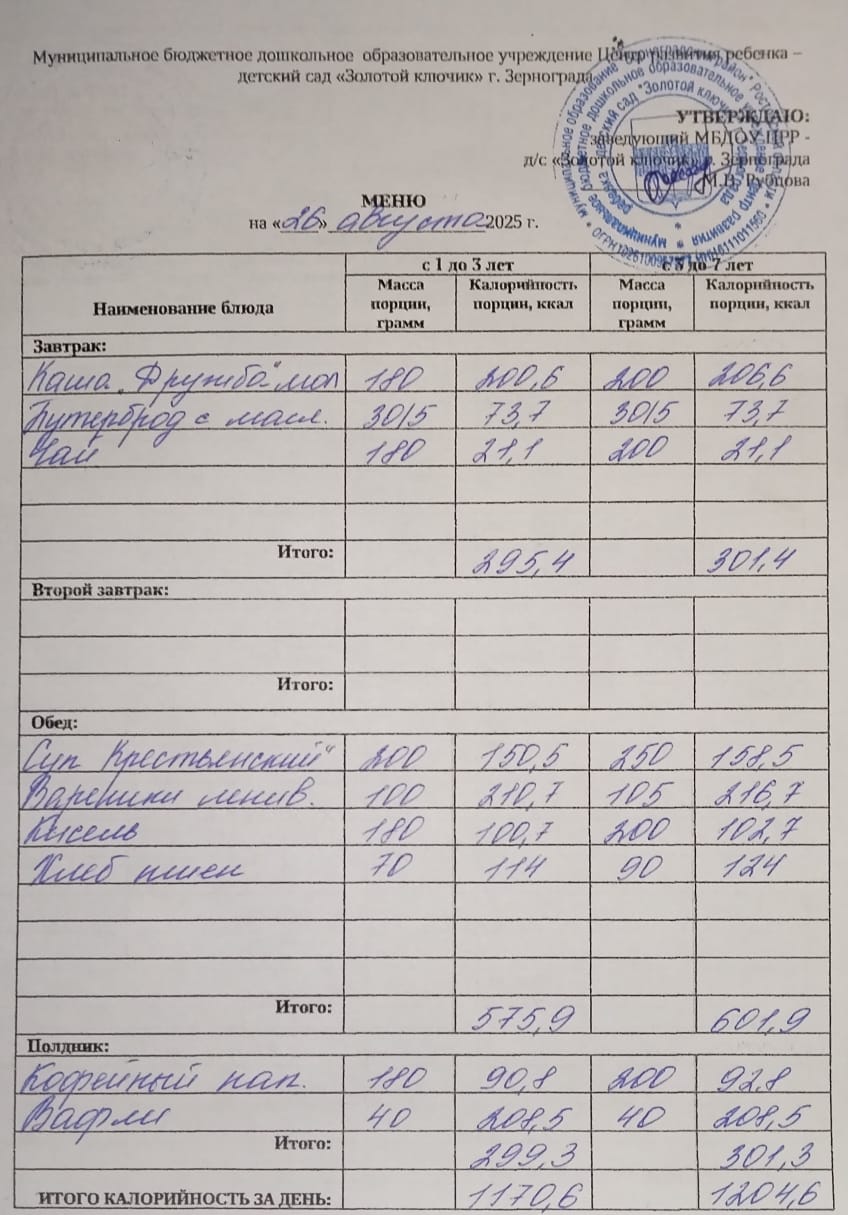 Муниципальное бюджетное дошкольное образовательное учреждение Центр развития ребенка –
детский сад «Золотой ключик» г. Зернограда
УТВЕРЖДАЮ:
заведующий МБДОУ ЦРР -
д/с «Золотой ключик» г. Зернограда
М.В. Рубцова
МЕНЮ
на «26» августа 2025 г.
с 1 до 3 лет с 3 до 7 лет
Наименование блюда Масса порции, грамм Калорийность порции, ккал Масса порции, грамм Калорийность порции, ккал
Завтрак:
Каша „Дружба" мол 180 200,6 200 206,6
Бутерброд с масл. 30/5 73,7 30/5 73,7
Чай 180 21,1 200 21,1
Итого: 295,4 301,4
Второй завтрак:
Итого:
Обед:
Суп Крестьянский" 200 150,5 250 158,5
Вареники ленив. 100 210,7 105 216,7
Кисель 180 100,7 200 102,7
Хлеб пшен 70 114 90 124
Итого: 575,9 601,9
Полдник:
Кофейный нап. 180 90,8 200 92,8
Вафли 40 208,5 40 208,5
Итого: 299,3 301,3
ИТОГО КАЛОРИЙНОСТЬ ЗА ДЕНЬ: 1170,6 1204,6